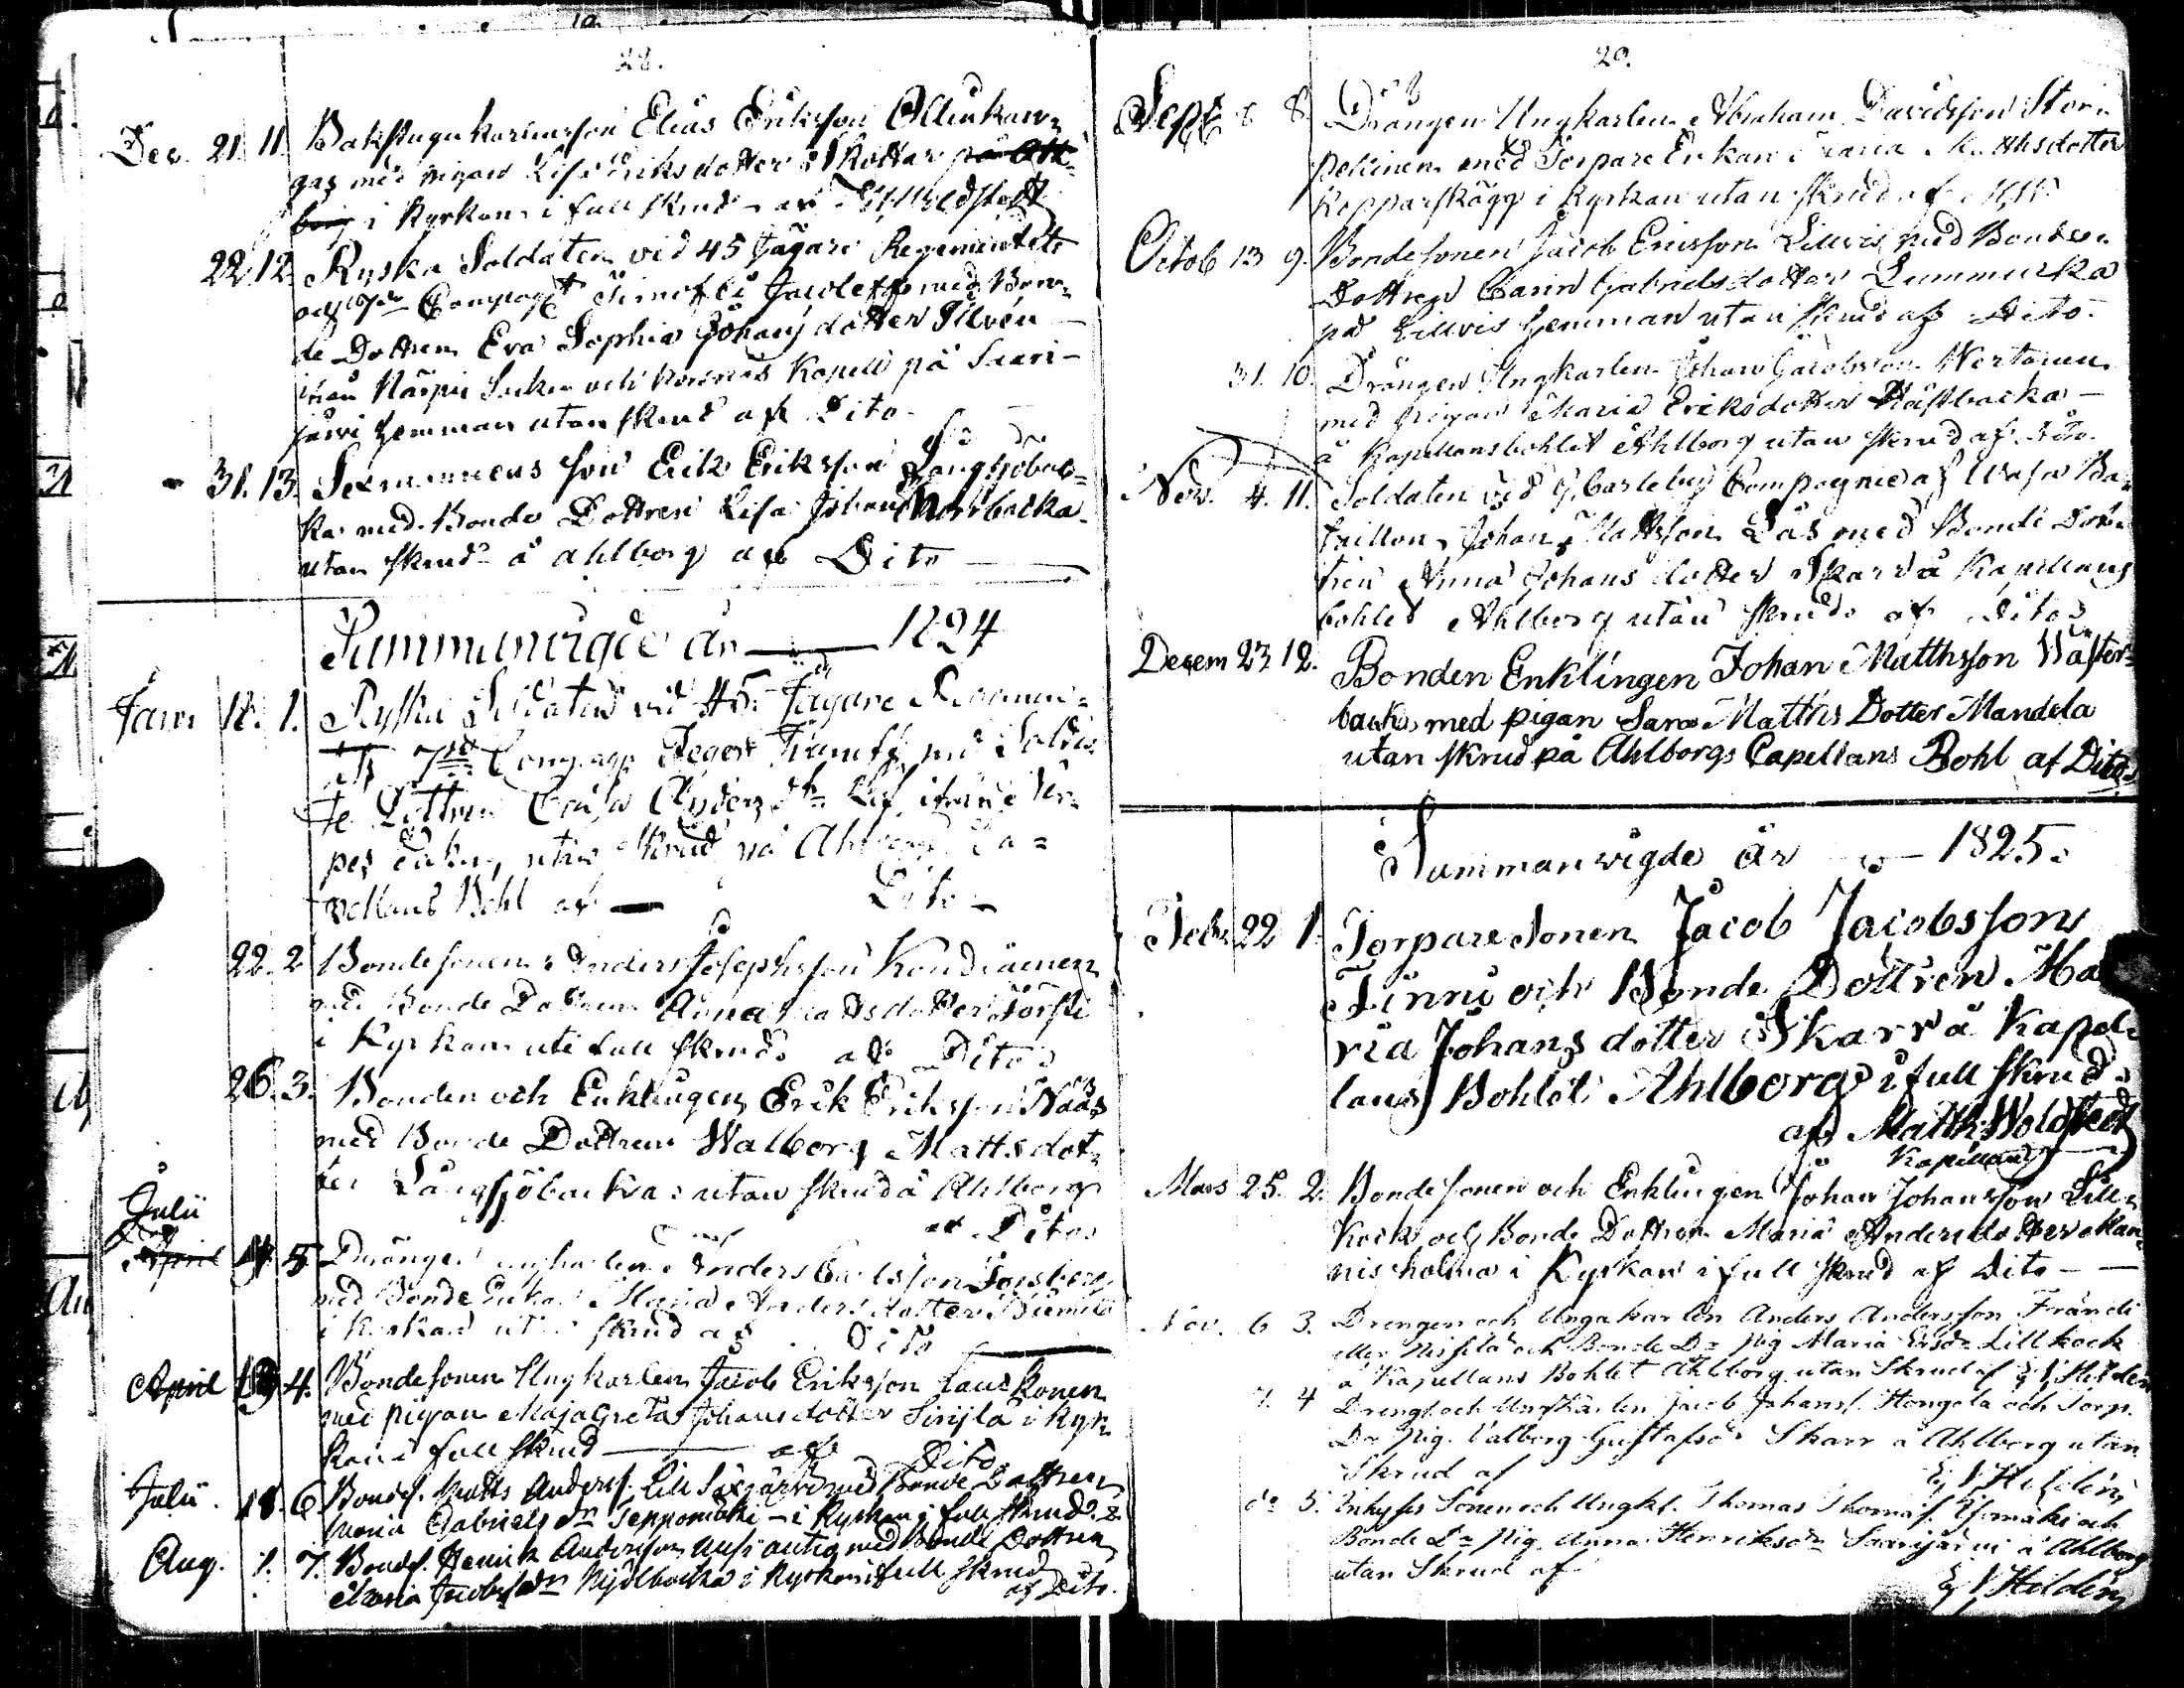 22.
Dec. 21. 11. Bakstugukarlensson Elias Eriksson
gas med pigan Lisa Eriksdotter Skottar på
i Kyrkan i full skrud af
22. 12. Ryska Soldaten vid 45 Jägare Regementets
och 7de Compagt med Bon-
de Dottren Eva Sophia Johansdotter
ifrån Närpis Socken och Korsnäs Kapell på Saari-
järvi Hemman utan skrud af Dito
31. 13. Sexmannens son Erik Eriksson Långsjöbac-
ka med Bonde Dottren Lisa Johansd. Norrbacka
utan skrud å Ahlborg af Dito
Sammanvigde år 1824
Janu 18. 1. Ryska Soldaten vid 45. Jägare Regemen-
7de Compagn med Solda-
te Dottren Caisa Anders dr
pes Socken, utan skrud på Ahlborg Ca-
pellans Bohl af Dito
22. 2 Bondesonen Anders Josephsson
med Bonde Dottren Anna Mattsdotter
i Kyrkan uti full skrud af Dito
26. 3. Bonden och Enklingen Erik Eriksson Nääs
med Bonde Dottren Walborg Mattsdot-
ter Långsjöbacka utan skrud å Ahlborg
af Dito
Julii
April 4 5 Drängen ungkarlen Anders Carlsson Forsberg
med Bonde Enkan Maria Anders dotter
i Kyrkan utan skrud af Dito
April 19 4. Bondesonen Ungkarlen Jacob Eriksson
med pigan Maja Greta Johansdotter Sirijla i Kyr-
kan i full skrud af Dito
Julii. 18. 6. Bondes. Matts Anders. Lill Sexjärvi med Bonde Dottren
Maria Gabriels dr Seppomäki i Kyrkan i full skrud
Aug. 1. 7. Bondes. Henrik Andersson med Bonde Dottren
Maria Jacobs dr Mjölbacka i Kyrkan i full skrud
af Dito.
20.
Sept 8 8 Drängen Ungkarlen Abraham Davidsson Stor-
pekinen med Torpare Enkan Maria Matthsdotter
Kopparskägg i Kyrkan utan skrud af
Octob 13 9. Bondesonen Jacob Ericsson Lillvis med Bonde
Dottren Carin Gabrielsdotter Lummukka
på Lillvis Hemman utan skrud af Dito
31. 10. Drängen Ungkarlen Johan Jacobsson Wertanen
med pigan Maria Eriksdotter Hästbacka
å Kapellansbohlet Ahlborg utan skrud af Dito.
Nov. 4. 11. Soldaten vid G. Carleby Compagnie af Wasa Ba-
taillon, Johan Mattsson Lås med Bonde Dot-
tren Anna Johans dotter Skarr å Kapellans
bohlet Ahlborg utan skrud af Dito
Decem 23 12. Bonden Enklingen Johan Matthsson Wäster-
backa med pigan Sara Matths Dotter Mandela
utan skrud på Ahlborgs Capellans Bohl af Dito
Sammanvigde år 1825.
Feb. 22 1. Torpare Sonen Jacob Jacobsson
Finni och Bonde Dottren Ma
ria Johans dotter Skarr å Kapel-
lans Bohlet Ahlborg i full skrud
af Matth. Woldstedt
Kapellan
Mars 25. 2. Bondesonen och Enklingen Johan Johansson Lill-
kock och Bonde Dottren Maria Andersdotter Man-
nisholma i Kyrkan i full skrud af Dito
Nov. 6 3. Drengen och Ungakarlen Anders Andersson Frändi
eller Nissila och Bonde Dr Pig Maria Ersdr Lillkock
å Kapellans Bohlet Ahlborg utan Skrud af E J Heldén
7. 4 Drengs och Ungkarlen Jacob Johans. Hongela och Torp.
Dr Pig. Valborg Gustafsdr Skarr å Ahlborg utan
Skrud af E J Heldén
do 5. Inhyses Sonen och Ungkl. Thomas Thomas. och
Bonde Dr Pig. Anna Henriksdr Saarijärvi å Ahlborg
utan Skrud af
E J Heldén